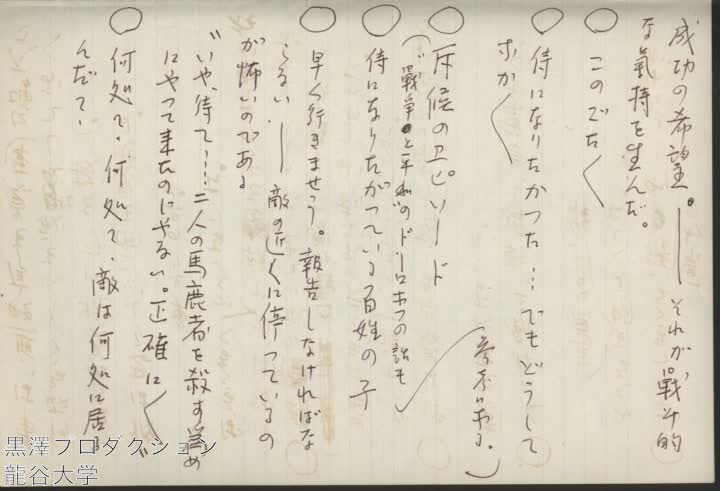 成功の希望。――それが、戦斗的
な気持を生んだ。
○このごたく
○侍になりたかった…でもどうして
○斥候のエピソード
(“戦争と平和”の 参考になる。)
○侍になりたがっている百姓の子
○早く行きませう。報告しなければな
らない――敵の近くに停っているの
が怖いのである
“いや、待て……三人の馬鹿者を殺す為め
にやって来たのぢやない。正確に
○何処で、何処で、敵は何処に居る
んだで、
黒澤プロダクション
龍谷大学